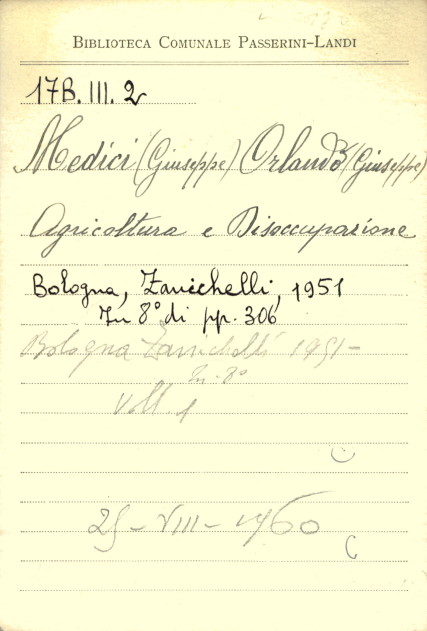 BIBLIOTECA COMUNALE PASSERINI-LANDI
17B. III. 2
Medici (Giuseppe) Orlando (Giuseppe)
Agricoltura e Disoccupazione
Bologna, Zanichelli, 1951
In 8° di pp. 306
Bologna Zanichelli 1951-
In-8°
Voll. 1
25-VIII-1960